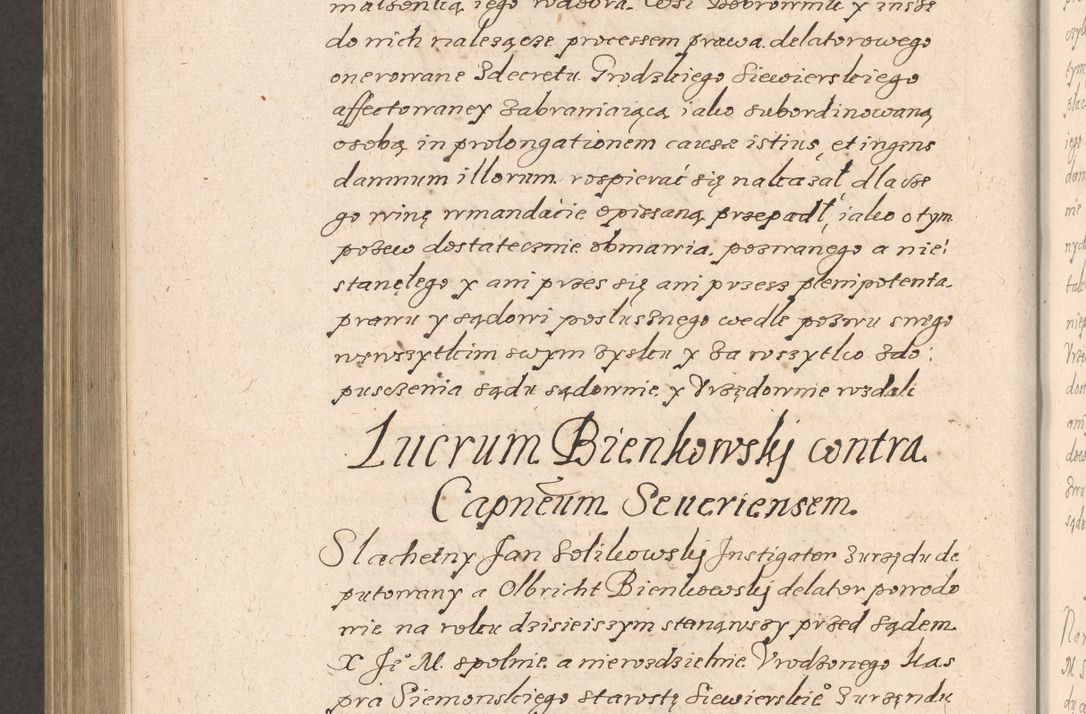 małżenką iego rodzora. Wsi Bobrownik y insze
do nich nalezącze processem prawa delatorowego
onerowane zdecretu Grodzkiego Siewierskiego
affectowaney zabraniaiącą iako subordinowaną
osobą in prolongationem causæ istius, et ingens
damnum illorum rospierać się nakazał, dla cze
go winę wmandacie opissaną przepadł, iako o tym
pozew dostatecznie obmawia. pozwanego a nie
stanęłego y ani przes się ani przess plenipotenta
prawu y sądowi posłusznego wedle pozwu swego
wewszytkim swym zysku y za wszytko zdo
pusczenia sądu sądownie y Vrzędownie wzdali
Lucrum Bienkowskj contra
Capnēum Seueriensem.
Slachetny Jan Solikowskj Instigator zurzędu de
putowany a Olbricht Bienkowskj delator powodo
wie na roku dzisieiszym stanąwszy przed sądem
X Je° M. spolnie a nierozdzielnie Vrodzonego Kas
pra Siemonskiego starostę Siewierskie° zurzęndu